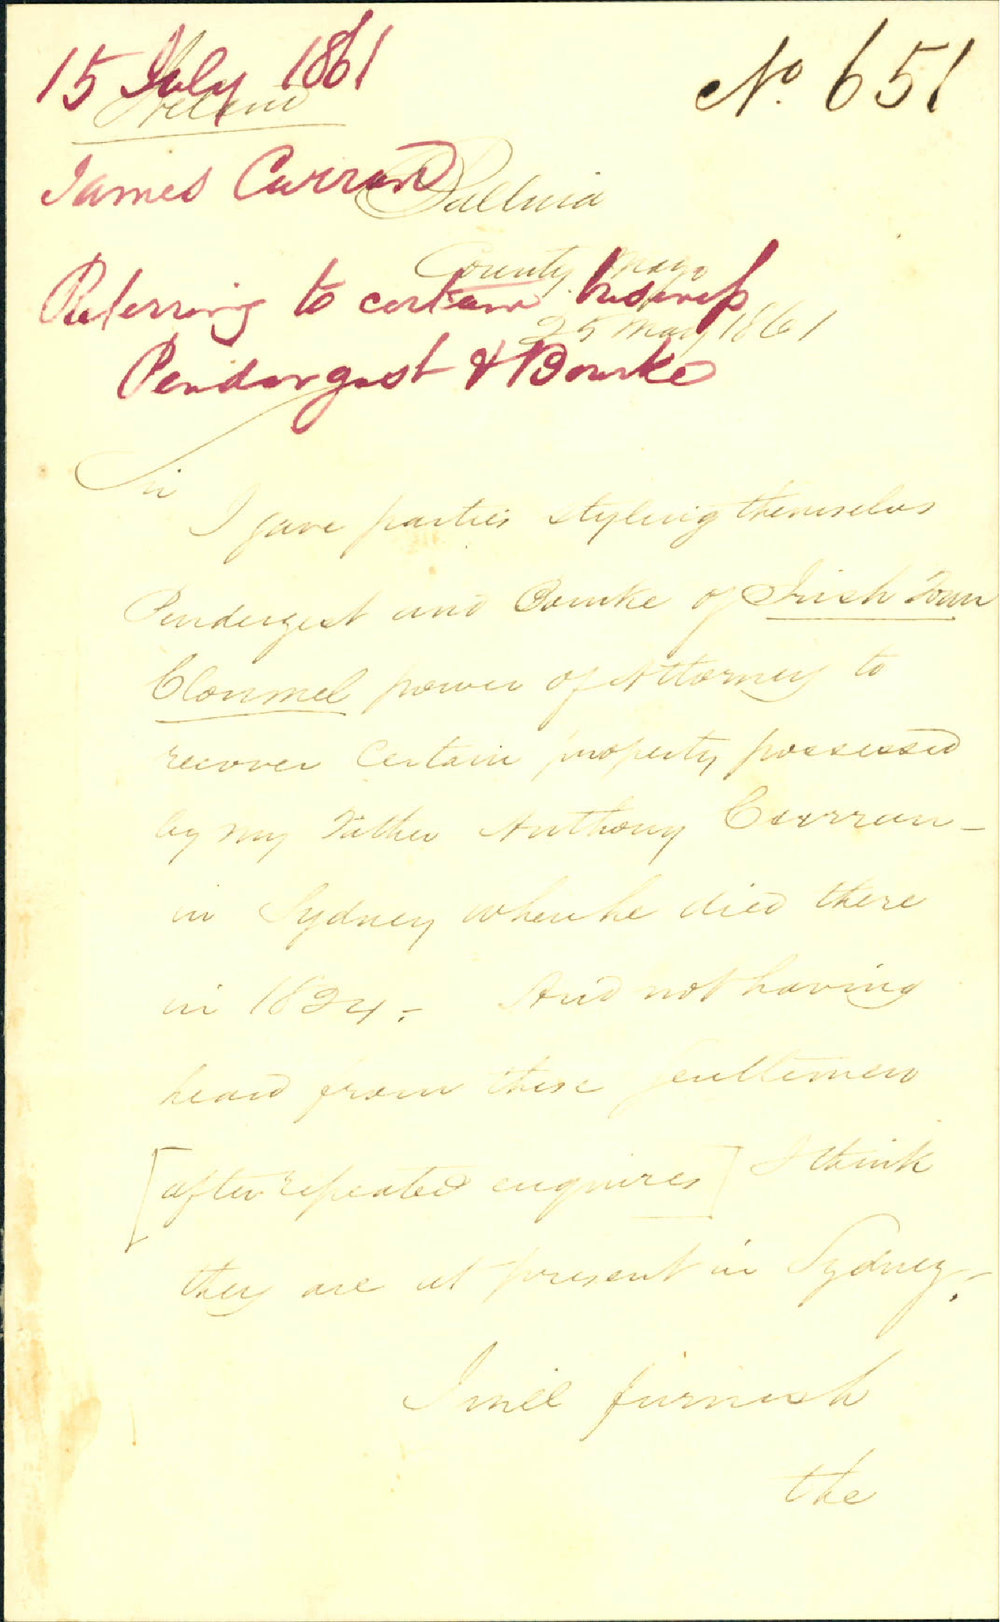 15 July 1861
No. 651
Ireland
James Curran
Ballina
County Mayo
Referring to certain
25 May 1861
Pendergast & Bourke
Sir
I gave parties styling themselves
Pendergest and Bourke of Irish Town
Clonmel power of Attorney to
recover Certain property possessed
by my Father Anthony Curran -
in Sydney when he died there
in 1824 :- And not having
heard from these Gentlemen
[after repeated enquires] I think
they are at present in Sydney :-
I will furnish
the